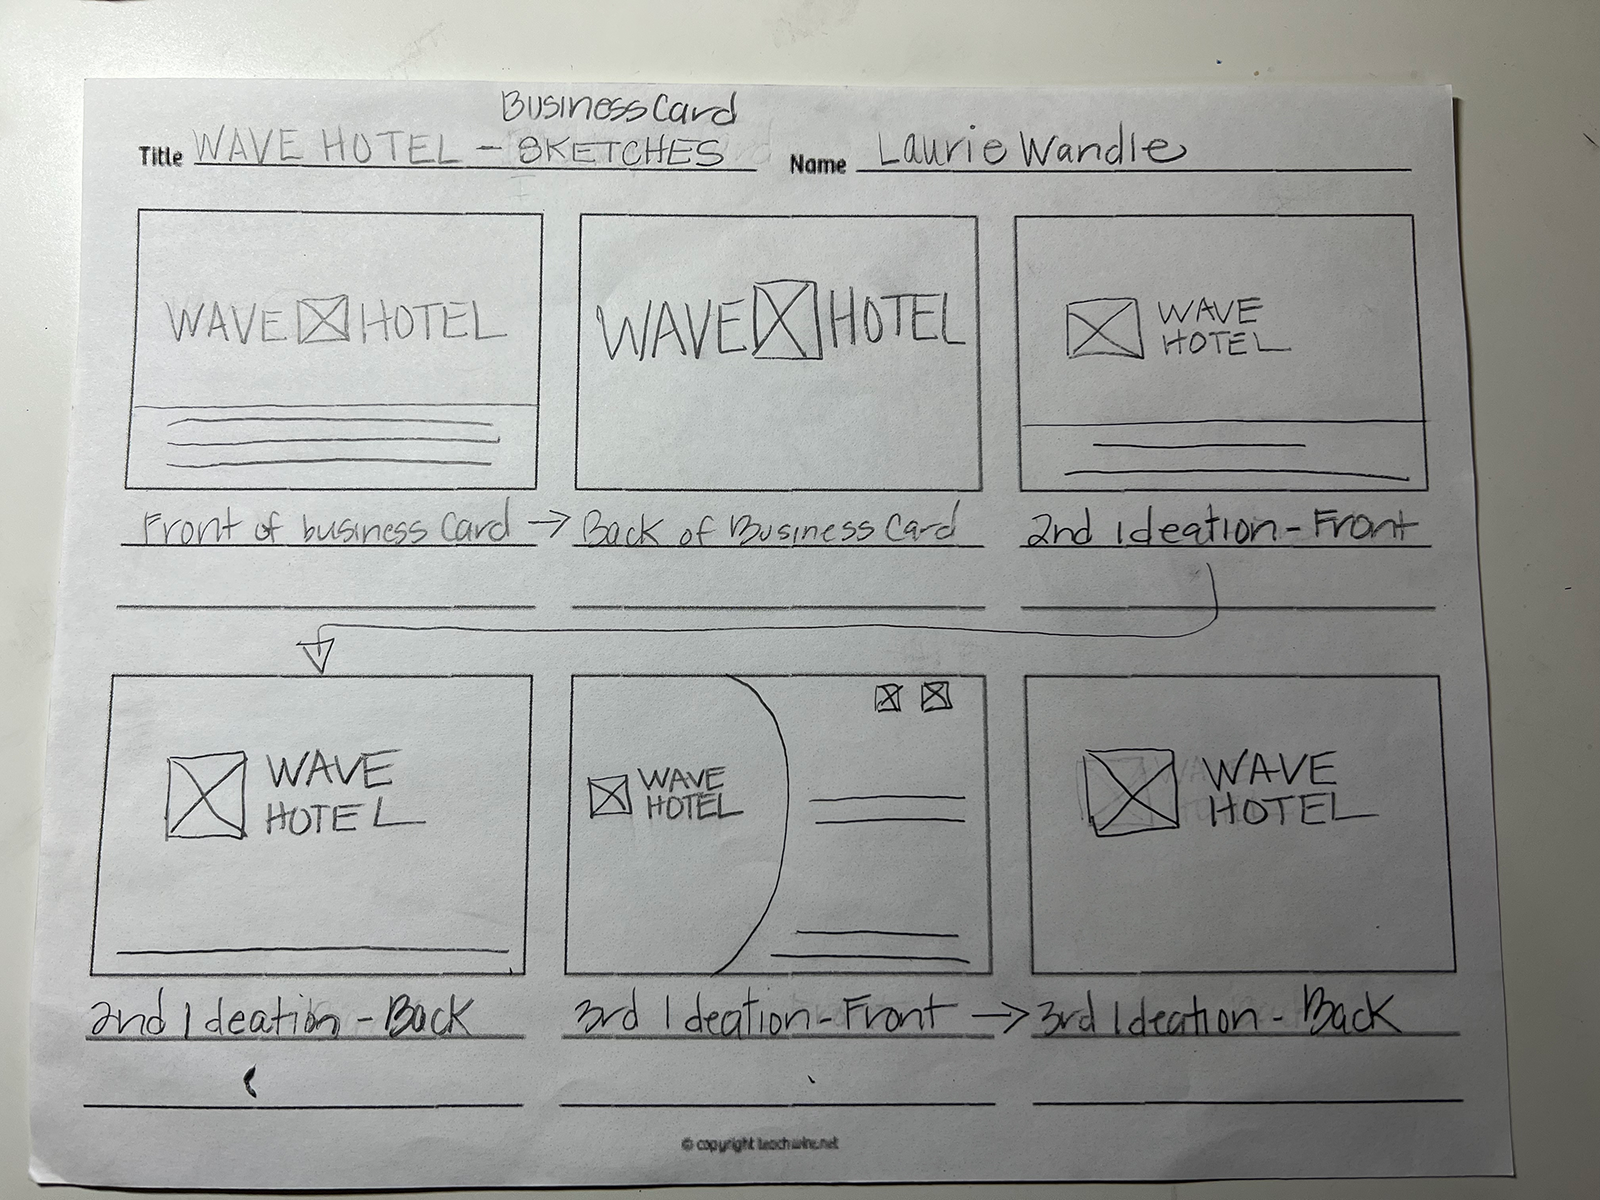 Business Card
Title WAVE HOTEL - SKETCHES Name Laurie Wandle
WAVE HOTEL
WAVE HOTEL
WAVE
HOTEL
Front of business Card → Back of Business Card
2nd Ideation - Front
WAVE
HOTEL
WAVE
HOTEL
WAVE
HOTEL
2nd Ideation - Back
3rd Ideation - Front → 3rd Ideation - Back
© copyright